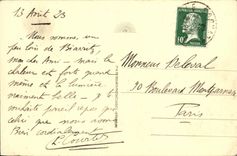 13 Août 23
Nous sommes un
peu loin de Biarritz,
mon cher Ami - mais la
chaleur est forte quand
même et la lumière
vraiment belle. Je
souhaite pareil repos que
celui que nous avons
Bien cordialement
Monsieur Deloval
90 Boulevard Montparnasse
Paris
10